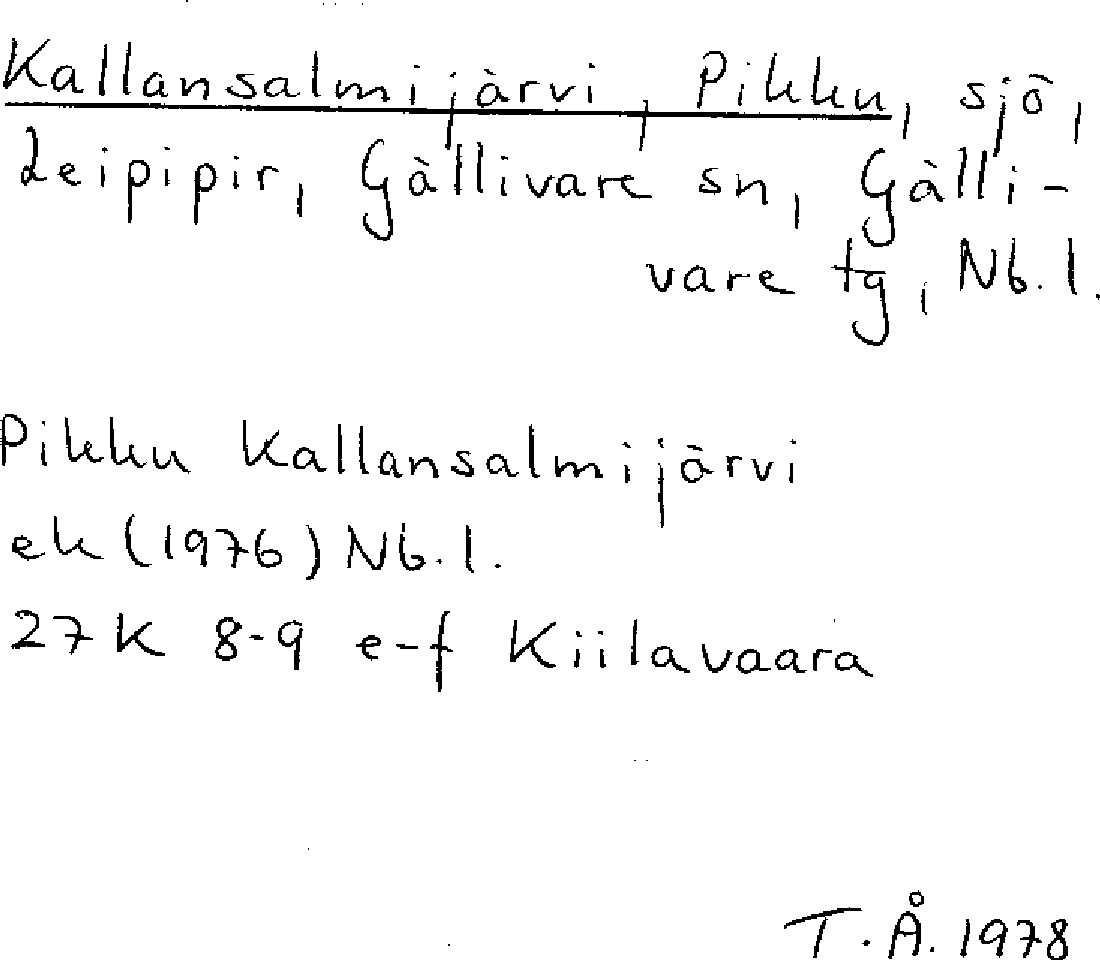 Kallansalmijärvi, Pikku, sjö,
Leipipir, Gällivare sn, Gälli-
vare tg, Nb.l.
Pikku Kallansalmijärvi
ek (1976) Nb.l.
27K 8-9 e-f Kiilavaara
T.Å. 1978